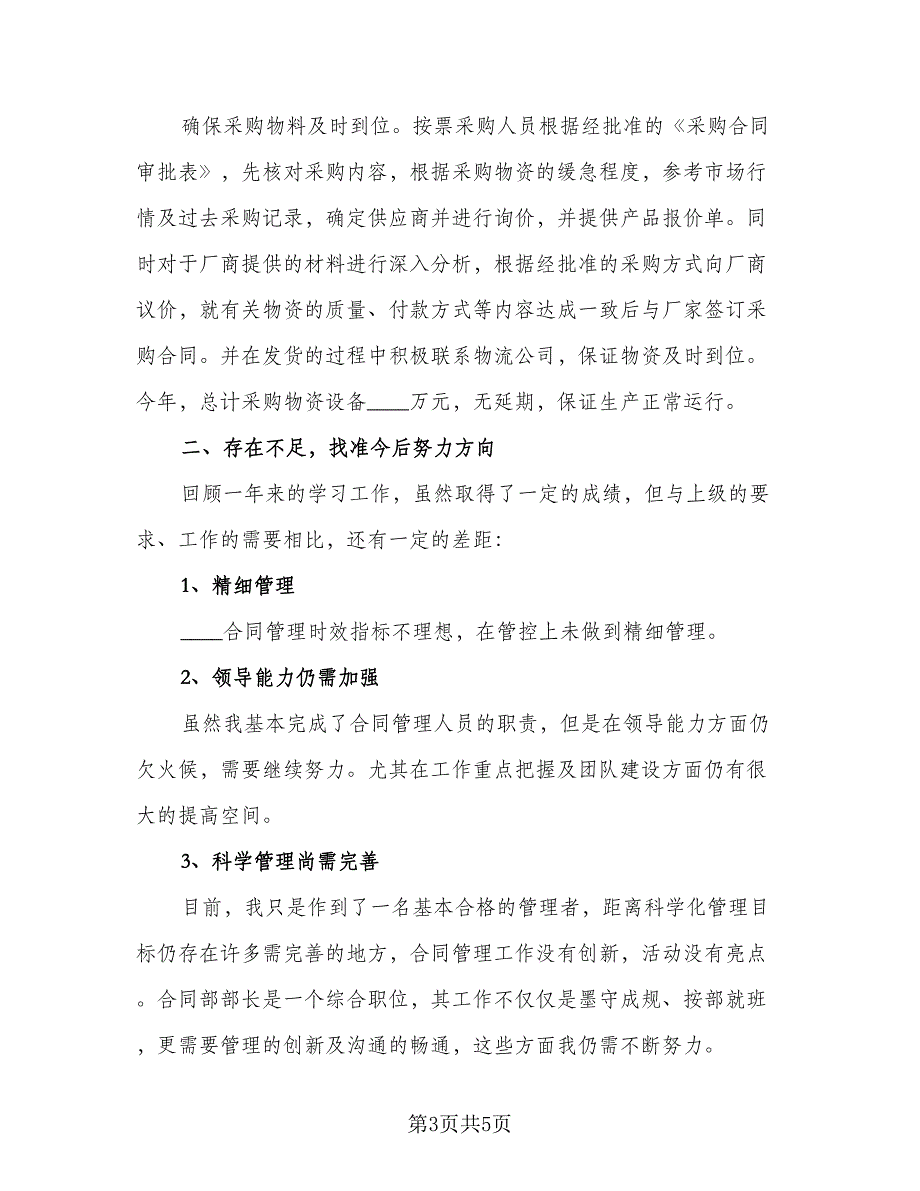 确保采购物料及时到位。按票采购人员根据经批准的《采购合同
审批表》，先核对采购内容，根据采购物资的缓急程度，参考市场行
情及过去采购记录，确定供应商并进行询价，并提供产品报价单。同
时对于厂商提供的材料进行深入分析，根据经批准的采购方式向厂商
议价，就有关物资的质量、付款方式等内容达成一致后与厂家签订采
购合同。并在发货的过程中积极联系物流公司，保证物资及时到位。
今年，总计采购物资设备____万元，无延期，保证生产正常运行。
二、存在不足，找准今后努力方向
回顾一年来的学习工作，虽然取得了一定的成绩，但与上级的要
求、工作的需要相比，还有一定的差距：
1、精细管理
____合同管理时效指标不理想，在管控上未做到精细管理。
2、领导能力仍需加强
虽然我基本完成了合同管理人员的职责，但是在领导能力方面仍
欠火候，需要继续努力。尤其在工作重点把握及团队建设方面仍有很
大的提高空间。
3、科学管理尚需完善
目前，我只是作到了一名基本合格的管理者，距离科学化管理目
标仍存在许多需完善的地方，合同管理工作没有创新，活动没有亮点
。合同部部长是一个综合职位，其工作不仅仅是墨守成规、按部就班
，更需要管理的创新及沟通的畅通，这些方面我仍需不断努力。
第3页共5页